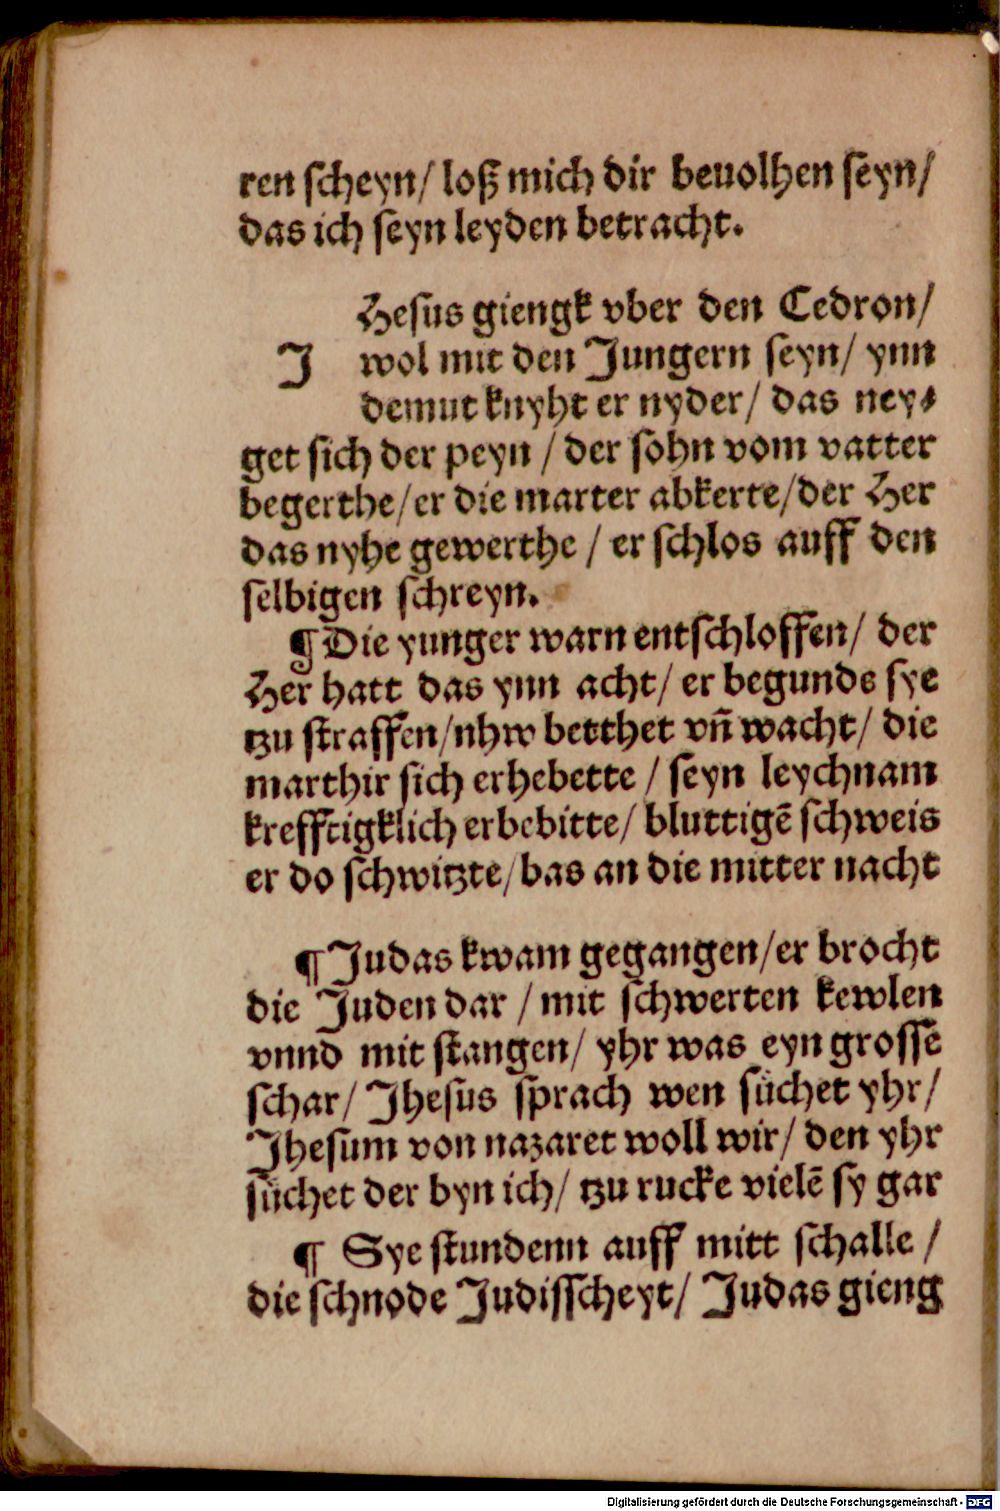 ren scheyn/ loß mich dir beuolhen seyn/
das ich seyn leyden betracht.
Hesus giengk vber den Cedron/
J wol mit den Jungern seyn/ ynn
demut knyht er nyder/ das ney⸗
get sich der peyn / der sohn vom vatter
begerthe/er die marter abkerte/der Her
das nyhe gewerthe / er schlos auff den
selbigen schreyn.
¶ Die yunger warn entschloffen/ der
Her hatt das ynn acht/ er begunde sye
tzu straffen/nhw betthet vñ wacht/ die
marthir sich erhebette / seyn leychnam
krefftigklich erbebitte/ bluttigē schweis
er do schwitzte/bas an die mitter nacht
¶ Judas kwam gegangen/er brocht
die Juden dar / mit schwerten kewlen
vnnd mit stangen/ yhr was eyn grosse
schar/ Jhesus sprach wen süchet yhr/
Jhesum von nazaret woll wir/ den yhr
süchet der byn ich/ tzu rucke vielē sy gar
¶ Sye stundenn auff mitt schalle /
die schnode Judisscheyt/ Judas gieng
Digitalisierung gefördert durch die Deutsche Forschungsgemeinschaft - DFG